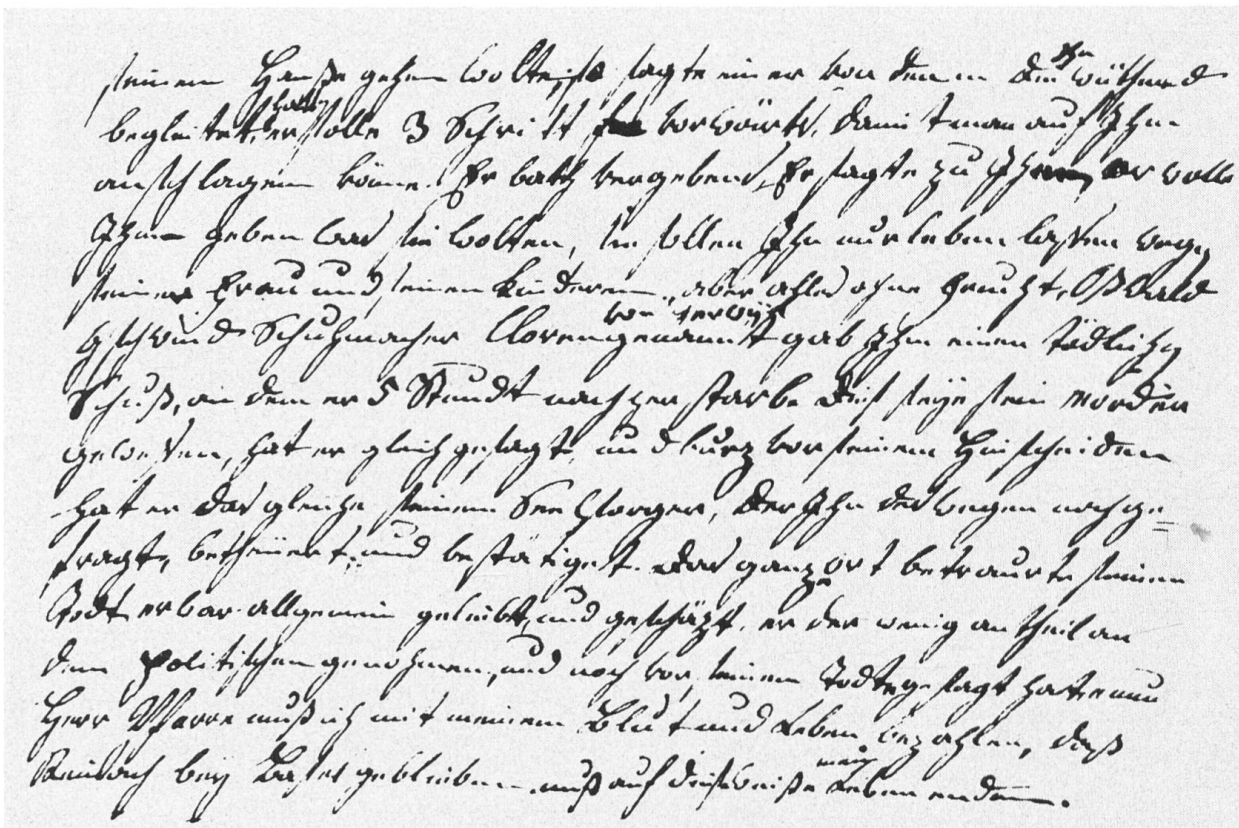 seinem Hauße gehen wolte, so sagte einer von denen die ihn wüthend
begleitet haben, er solle 3 Schritt vorwärts, damit man auf Ihn
anschlagen könne. Er bath vergebens, Er sagte zu Ihnen, er wolle
Ihnen geben was sie wolten, sie sollen Ihn nur leben lassen wegen
seiner Frau und seinen Kinderen, aber alles ohne Frucht, Oswald
Gschwind Schuhmacher Cloren genannt von Terwyl gab Ihm einen tödlichen
Schuß, an dem er 5 Stundt nachher starbe. Dies seye sein Mörder
gewessen, hat er gleich gesagt, und kurz vor seinem Hinscheiden
hat er das gleiche seinem Seelsorger, der Ihn deswegen nachge=
fragt, betheüert, und bestätiget. Das ganze ort betraurte seinen
Todt er war allgemein geliebt, und geschäzt, er der wenig antheil an
dem Politischen genohmen, und noch vor seinem Todte gesagt hat: nun
Herr Pfarrer muß ich mit meinem Blut und Leben bezahlen, daß
Reinach bey Basel geblieben, muß auf diese weiße mein Leben enden.